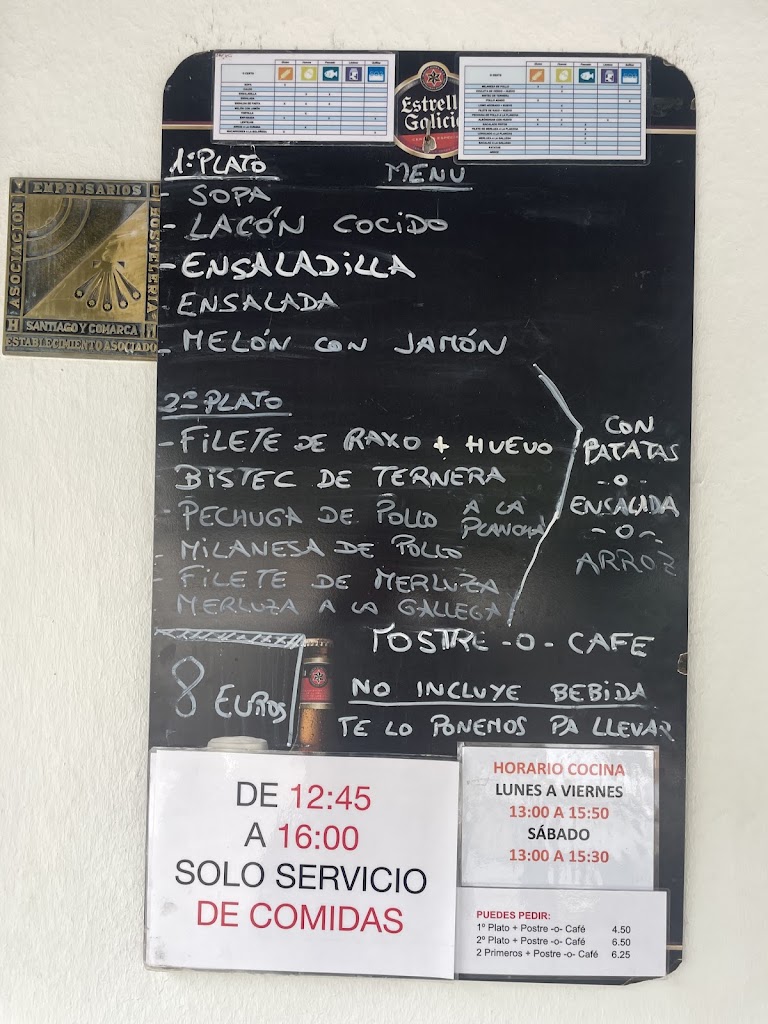 Estrella
Galicia
1º PLATO
MENU
- SOPA
- LACÓN COCIDO
- ENSALADILLA
- ENSALADA
- MELÓN CON JAMÓN
2º PLATO
- FILETE DE RAXO + HUEVO
BISTEC DE TERNERA
- PECHUGA DE POLLO A LA PLANCHA
- MILANESA DE POLLO
- FILETE DE MERLUZA
MERLUZA A LA GALLEGA
CON
PATATAS
-o-
ENSALADA
-o-
ARROZ
POSTRE -O- CAFE
8 EUROS
NO INCLUYE BEBIDA
TE LO PONEMOS PA LLEVAR
ASOCIACION
EMPRESARIOS
HOSTELERIA
SANTIAGO Y COMARCA
ESTABLECIMIENTO ASOCIADO
DE 12:45
A 16:00
SOLO SERVICIO
DE COMIDAS
HORARIO COCINA
LUNES A VIERNES
13:00 A 15:50
SÁBADO
13:00 A 15:30
PUEDES PEDIR:
1º Plato + Postre -o- Café 4.50
2º Plato + Postre -o- Café 6.50
2 Primeros + Postre -o- Café 6.25